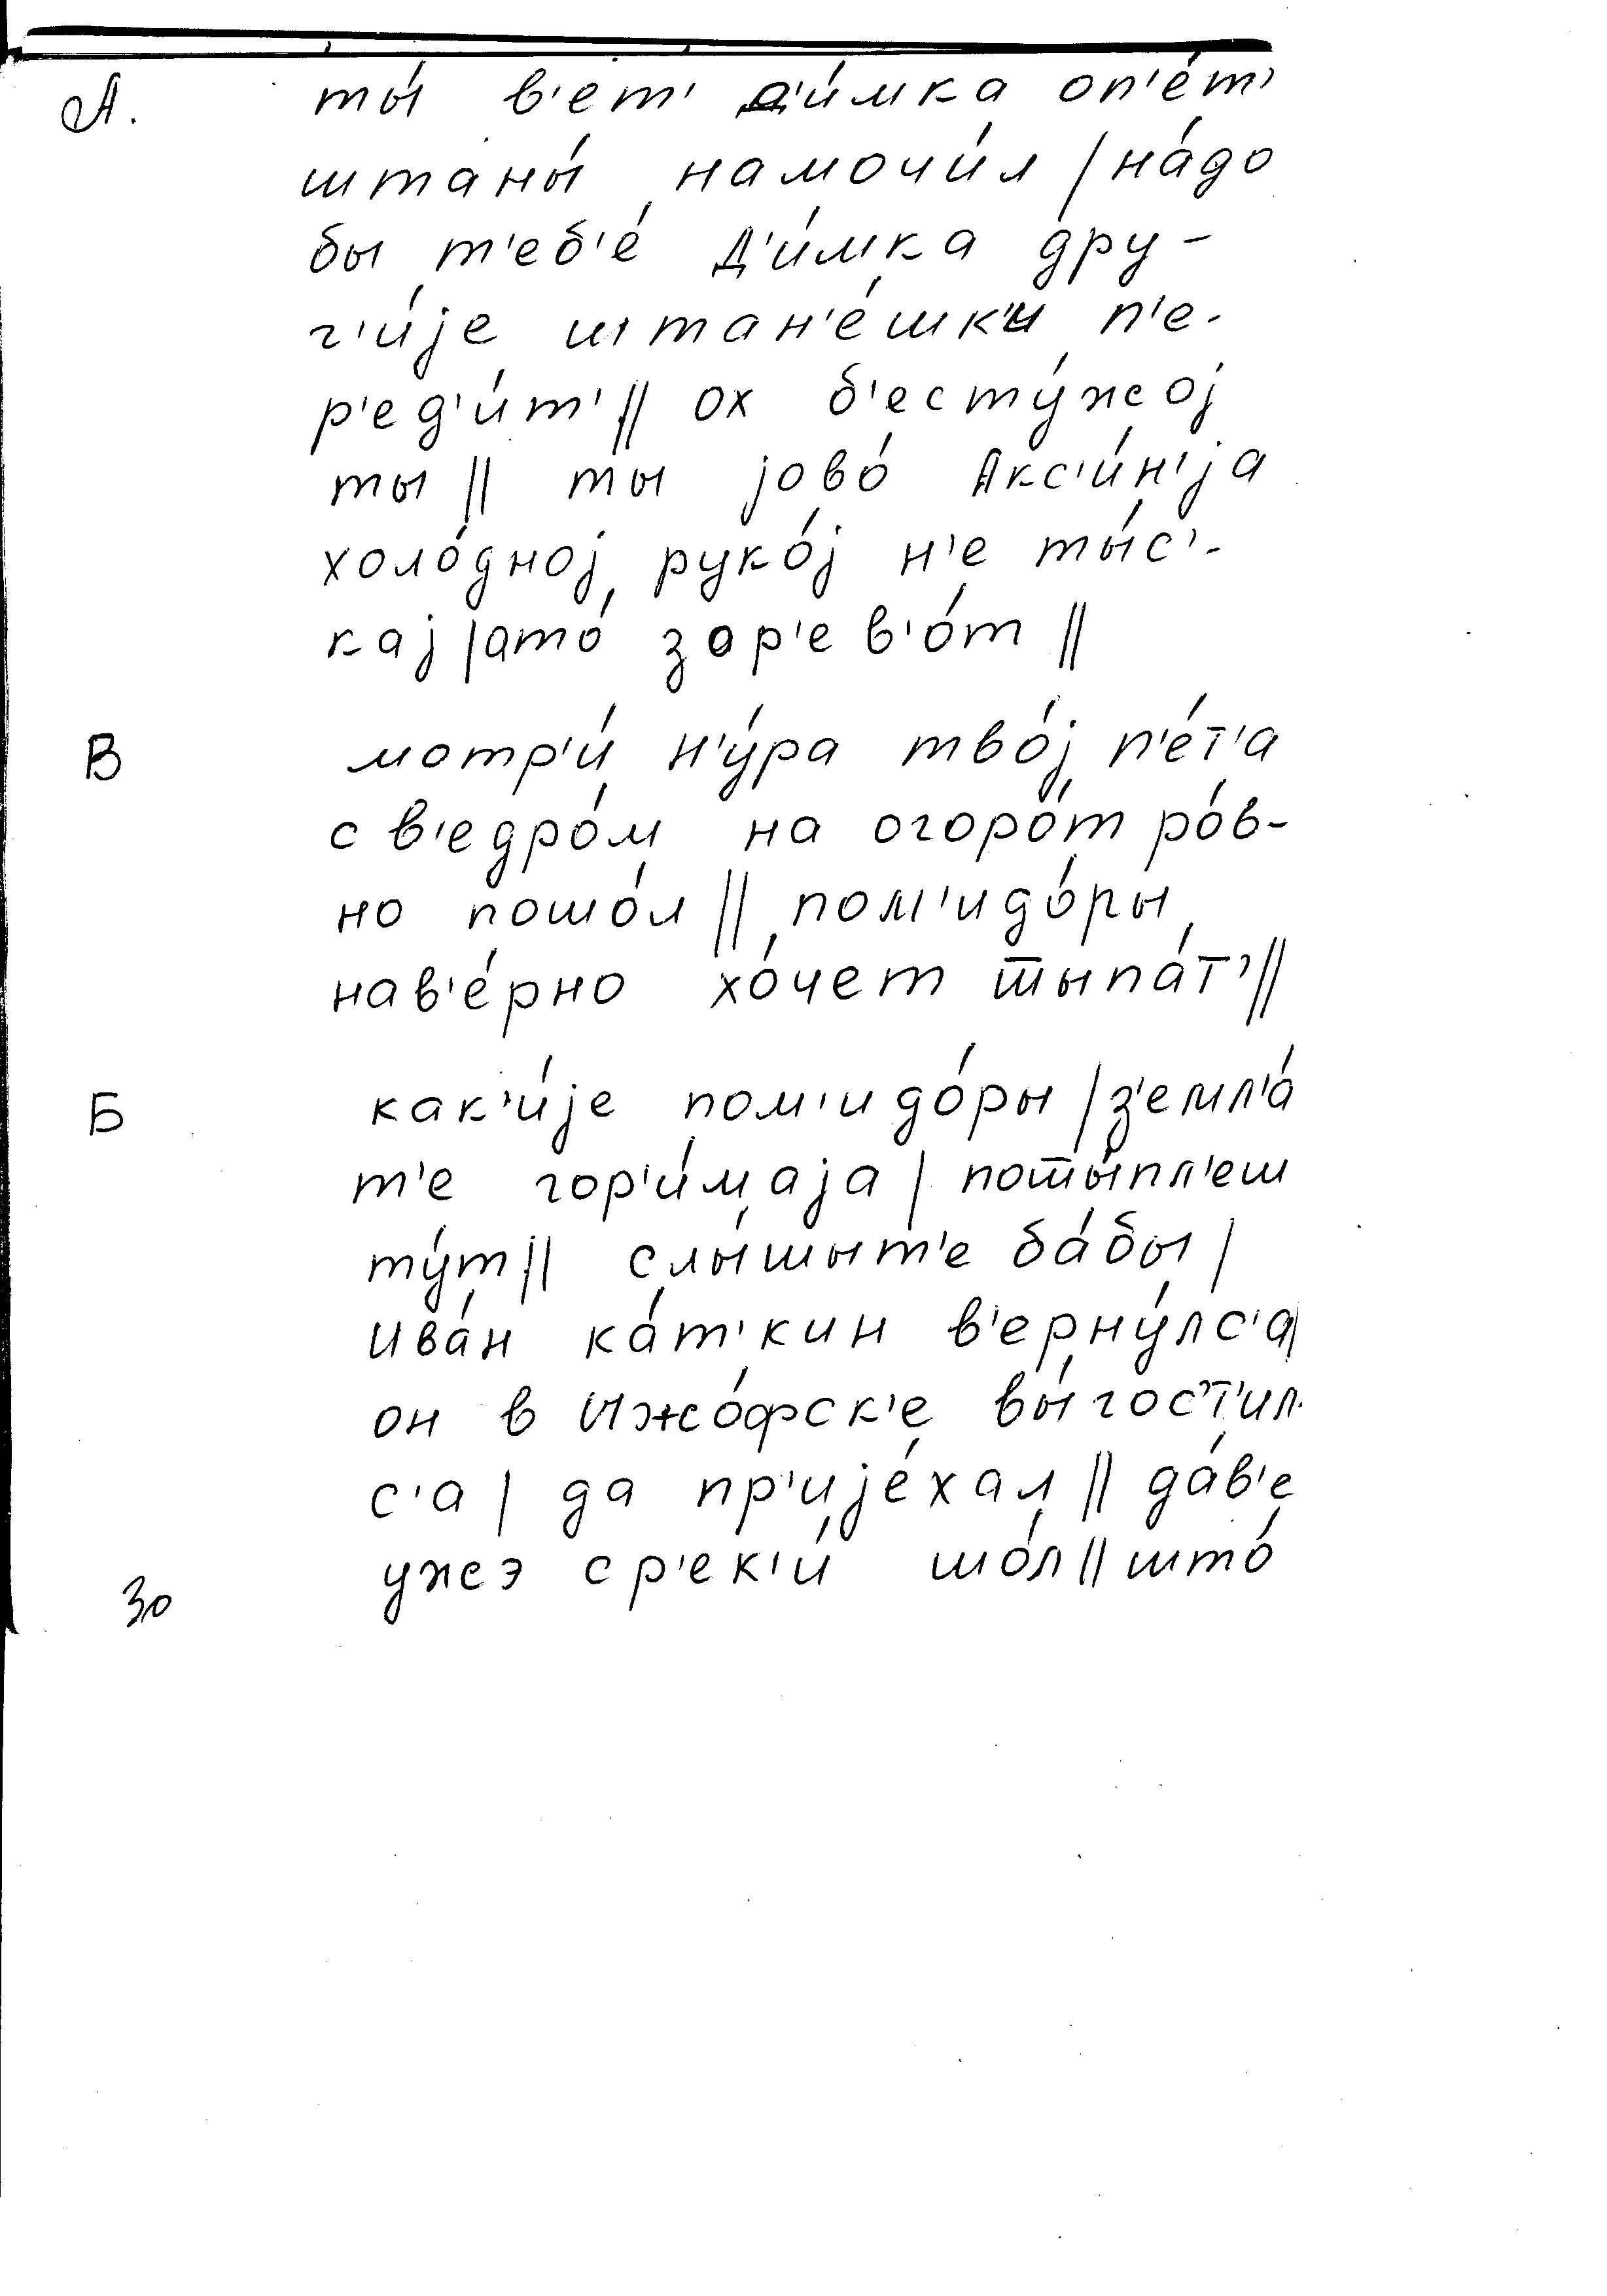 А. ты́ в'ет' д'и́мка оп'е́т'
штаны́ намочи́л | на́до
бы т'еб'е́ Д'и́мка дру-
г'и́jе штан'е́шк'и п'е-
р'ед'и́т' || ох б'есту́жоj
ты || ты jово́ Акс'и́н'jа
холо́дноj руко́j н'е ты́с'-
каj | ато́ зар'ев'о́т ||
В мотр'и́ н'у́ра тво́j п'е́т'а
с в'едро́м на огоро́т ро́в-
но пошо́л || пом'идо́ры
нав'е́рно хо́чет тыпа́т' ||
Б как'и́jе пом'идо́ры | з'емл'а́
т'е гор'и́маjа | поты́пл'еш
ту́т || слы́шыт'е ба́бы |
Ива́н ка́т'кин в'ерну́лс'а |
он в Ижо́фск'е вы́гост'ил-
с'а | да пр'иjе́хал || да́в'е
ужэ с р'ек'и́ шо́л || што́
30